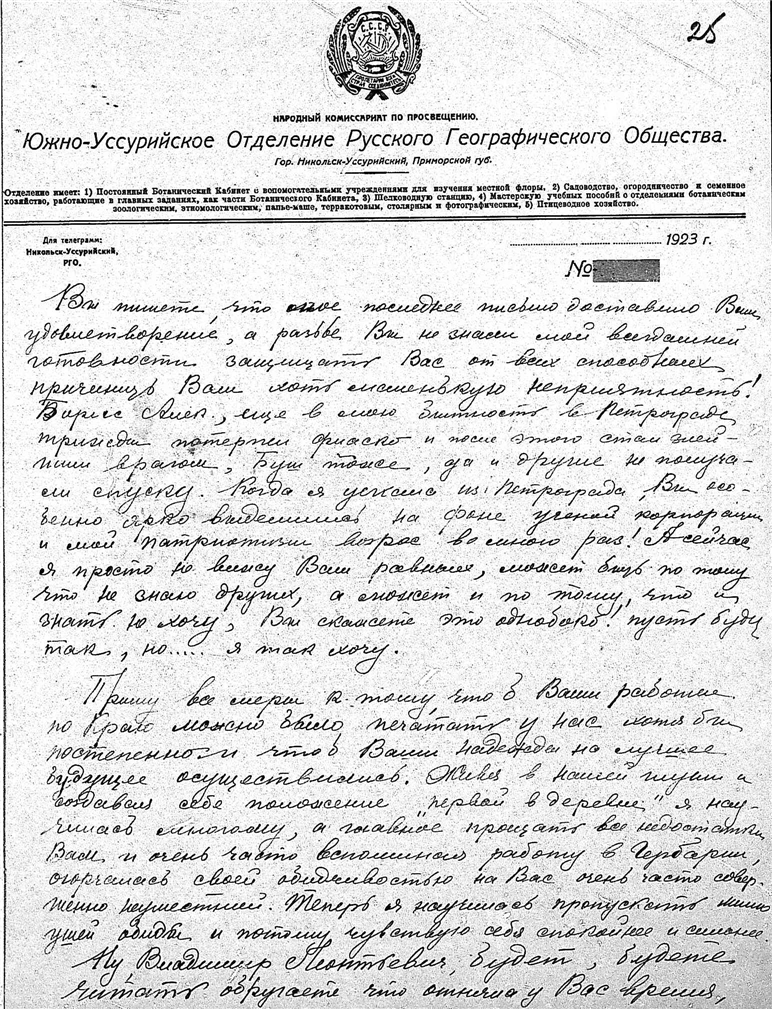 25
С.С.С.Р.
НАРОДНЫЙ КОМИССАРИАТ ПО ПРОСВЕЩЕНИЮ.
Южно-Уссурийское Отделение Русского Географического Общества.
Гор. Никольск-Уссурийский, Приморской губ.
Отделение имеет: 1) Постоянный Ботанический Кабинет с вспомогательными учреждениями для изучения местной флоры, 2) Садоводство, огородничество и семенное
хозяйство, работающие в главных заданиях, как части Ботанического Кабинета, 3) Шелководную станцию, 4) Мастерскую учебных пособий с отделениями ботаническим
зоологическим, этномологическим, папье-маше, терракотовым, столярным и фотографическим, 5) Птицеводное хозяйство.
Для телеграмм:
Никольск-Уссурийский,
РГО.
1923 г.
№
Вы пишете, что мое последнее письмо доставило Вам
удовлетворение, а разве Вы не знали мой всегдашней
готовности защищать Вас от всех способных
причинить Вам хоть маленькую неприятность!
Борис Алек., еще в мою бытность в Петрограде
трижды потерпел фиаско и после этого стал злей-
шим врагом, Буш тоже, да и другие не получа-
ли спуску. Когда я уехала из Петрограда, Вы осо-
бенно ярко выделились на фоне ученой корпорации
и мой патриотизм возрос во много раз! А сейчас
я просто не вижу Вам равных, может быть по тому
что не знаю других, а может и по тому, что и
знать не хочу, Вы скажете это однобоко! пусть буде
так, но..... я так хочу.
Приму все меры к тому, что б Ваши работы
по Краю можно было печатать у нас хотя бы
постепенно и что б Ваши надежды на лучшее
будущее осуществились. Живя в нашей глуши и
создавая себе положение "первой в деревне" я нау-
чилась многому, а главное прощать все недостатки
Вам и очень часто вспоминая работу в Гербарии,
огорчалась своей обидчивостью на Вас очень часто совер-
женно неуместной. Теперь я научилась пропускать мимо
ушей обиды и потому чувствую себя спокойнее и сильнее.
Ну Владимир Леонтьевич, будет, будете
читать обругаете что отняла у Вас время,